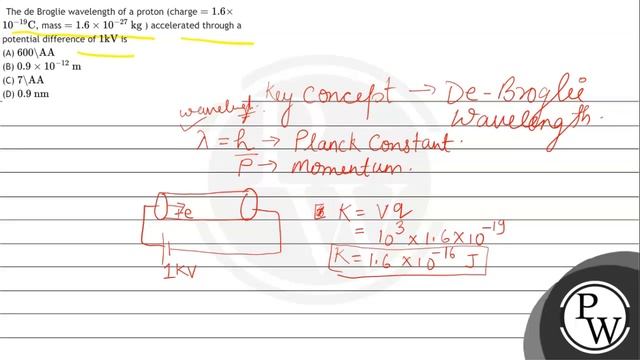 The de Broglie wavelength of a proton (charge = 1.6×
10⁻¹⁹C, mass = 1.6 × 10⁻²⁷ kg ) accelerated through a
potential difference of 1kV is
(A) 600\AA
(B) 0.9 × 10⁻¹² m
(C) 7\AA
(D) 0.9 nm
Key Concept → De-Broglie
Wavelength.
λ = h → Planck Constant.
P → Momentum.
+e
1KV
K = Vq
= 10³ × 1.6 × 10⁻¹⁹
K = 1.6 × 10⁻¹⁶ J
P
W